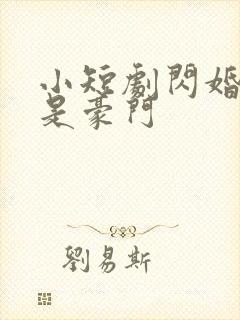 小短劇閃婚
是豪門
劉易斯